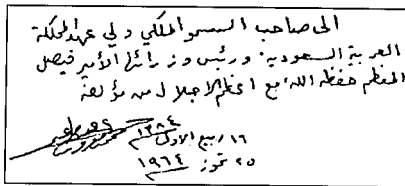 الى صاحب السمو الملكي ولي عهد المملكة
العربية السعودية ورئيس وزرائها الأمير فيصل
المعظم حفظه الله مع اعظم الاجلال من مؤلفه
١٦ ربيع الاول ١٣٨٤
٢٥ تموز ١٩٦٤